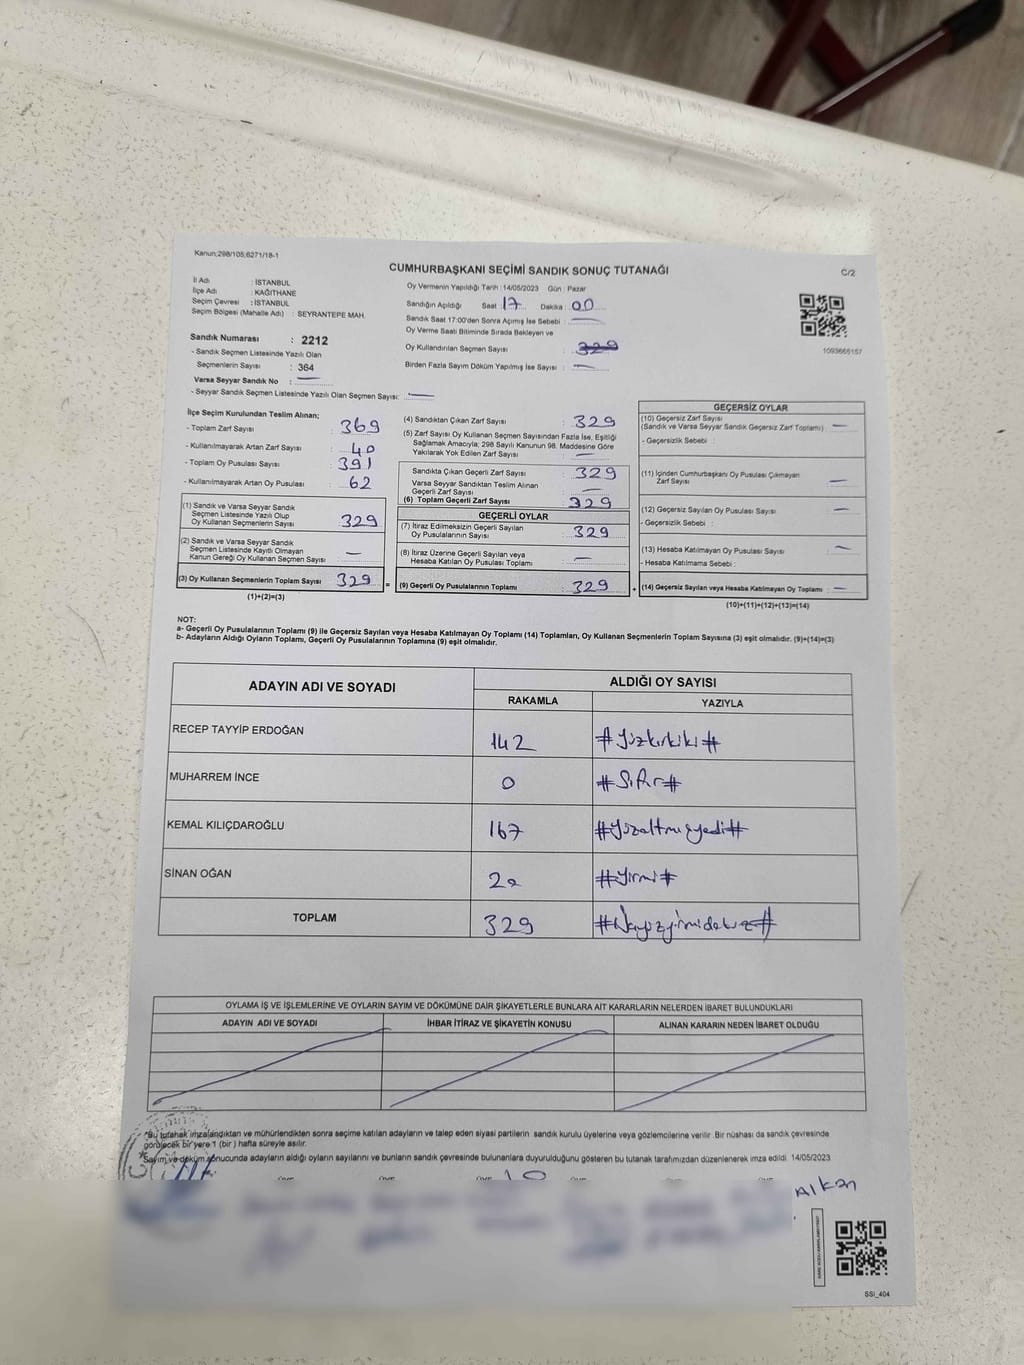 Kanun;298/105;6271/18-1
CUMHURBAŞKANI SEÇİMİ SANDIK SONUÇ TUTANAĞI
C/2
İl Adı : İSTANBUL
İlçe Adı : KAĞITHANE
Seçim Çevresi : İSTANBUL
Seçim Bölgesi (Mahalle Adı) : SEYRANTEPE MAH.
Oy Vermenin Yapıldığı Tarih : 14/05/2023 Gün : Pazar
Sandığın Açıldığı Saat : 17 Dakika : 00
Sandık Saat 17:00'den Sonra Açmış İse Sebebi : —
Oy Verme Saati Bitiminde Sırada Bekleyen ve
Oy Kullandırılan Seçmen Sayısı : 329
Birden Fazla Sayım Döküm Yapılmış İse Sayısı : —
1093665157
Sandık Numarası : 2212
- Sandık Seçmen Listesinde Yazılı Olan
Seçmenlerin Sayısı : 364
Varsa Seyyar Sandık No : —
- Seyyar Sandık Seçmen Listesinde Yazılı Olan Seçmen Sayısı: —
İlçe Seçim Kurulundan Teslim Alınan;
- Toplam Zarf Sayısı : 369
- Kullanılmayarak Artan Zarf Sayısı : 40
- Toplam Oy Pusulası Sayısı : 391
- Kullanılmayarak Artan Oy Pusulası : 62
(1) Sandık ve Varsa Seyyar Sandık
Seçmen Listesinde Yazılı Olup
Oy Kullanan Seçmenlerin Sayısı : 329
(2) Sandık ve Varsa Seyyar Sandık
Seçmen Listesinde Kayıtlı Olmayan
Kanun Gereği Oy Kullanan Seçmen Sayısı : —
(3) Oy Kullanan Seçmenlerin Toplam Sayısı : 329 =
(1)+(2)=(3)
(4) Sandıktan Çıkan Zarf Sayısı : 329
(5) Zarf Sayısı Oy Kullanan Seçmen Sayısından Fazla İse, Eşitliği
Sağlamak Amacıyla; 298 Sayılı Kanunun 98. Maddesine Göre
Yakılarak Yok Edilen Zarf Sayısı : —
Sandıkta Çıkan Geçerli Zarf Sayısı : 329
Varsa Seyyar Sandıktan Teslim Alınan
Geçerli Zarf Sayısı : —
(6) Toplam Geçerli Zarf Sayısı : 329
GEÇERLİ OYLAR
(7) İtiraz Edilmeksizin Geçerli Sayılan
Oy Pusulalarının Sayısı : 329
(8) İtiraz Üzerine Geçerli Sayılan veya
Hesaba Katılan Oy Pusulası Toplamı : —
(9) Geçerli Oy Pusulalarının Toplamı : 329 +
GEÇERSİZ OYLAR
(10) Geçersiz Zarf Sayısı
(Sandık ve Varsa Seyyar Sandık Geçersiz Zarf Toplamı) : —
- Geçersizlik Sebebi :
(11) İçinden Cumhurbaşkanı Oy Pusulası Çıkmayan
Zarf Sayısı : —
(12) Geçersiz Sayılan Oy Pusulası Sayısı : —
- Geçersizlik Sebebi :
(13) Hesaba Katılmayan Oy Pusulası Sayısı : —
- Hesaba Katılmama Sebebi :
(14) Geçersiz Sayılan veya Hesaba Katılmayan Oy Toplamı : —
(10)+(11)+(12)+(13)=(14)
NOT:
a- Geçerli Oy Pusulalarının Toplamı (9) ile Geçersiz Sayılan veya Hesaba Katılmayan Oy Toplamı (14) Toplamları, Oy Kullanan Seçmenlerin Toplam Sayısına (3) eşit olmalıdır. (9)+(14)=(3)
b- Adayların Aldığı Oyların Toplamı, Geçerli Oy Pusulalarının Toplamına (9) eşit olmalıdır.
ADAYIN ADI VE SOYADI
ALDIĞI OY SAYISI
RAKAMLA YAZIYLA
RECEP TAYYİP ERDOĞAN 142 #Yüzkırkiki#
MUHARREM İNCE 0 #Sıfır#
KEMAL KILIÇDAROĞLU 167 #Yüzaltmışyedi#
SİNAN OĞAN 20 #Yirmi#
TOPLAM 329
OYLAMA İŞ VE İŞLEMLERİNE VE OYLARIN SAYIM VE DÖKÜMÜNE DAİR ŞİKAYETLERLE BUNLARA AİT KARARLARIN NELERDEN İBARET BULUNDUKLARI
ADAYIN ADI VE SOYADI İHBAR İTİRAZ VE ŞİKAYETİN KONUSU ALINAN KARARIN NEDEN İBARET OLDUĞU
*Bu tutanak imzalandıktan ve mühürlendikten sonra seçime katılan adayların ve talep eden siyasi partilerin sandık kurulu üyelerine veya gözlemcilerine verilir. Bir nüshası da sandık çevresinde
görülecek bir yere 1 (bir) hafta süreyle asılır.
*Sayım ve döküm sonucunda adayların aldığı oyların sayılarını ve bunların sandık çevresinde bulunanlara duyurulduğunu gösteren bu tutanak tarafımızdan düzenlenerek imza edildi. 14/05/2023
Alkan
SSI_404